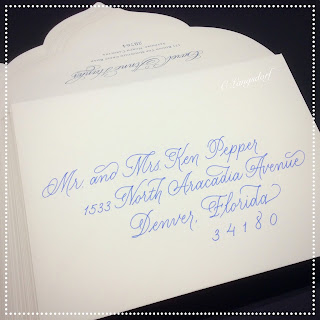 Mr. and Mrs. Ken Pepper
1533 North Aracadia Avenue
Denver, Florida
3 4 1 8 0